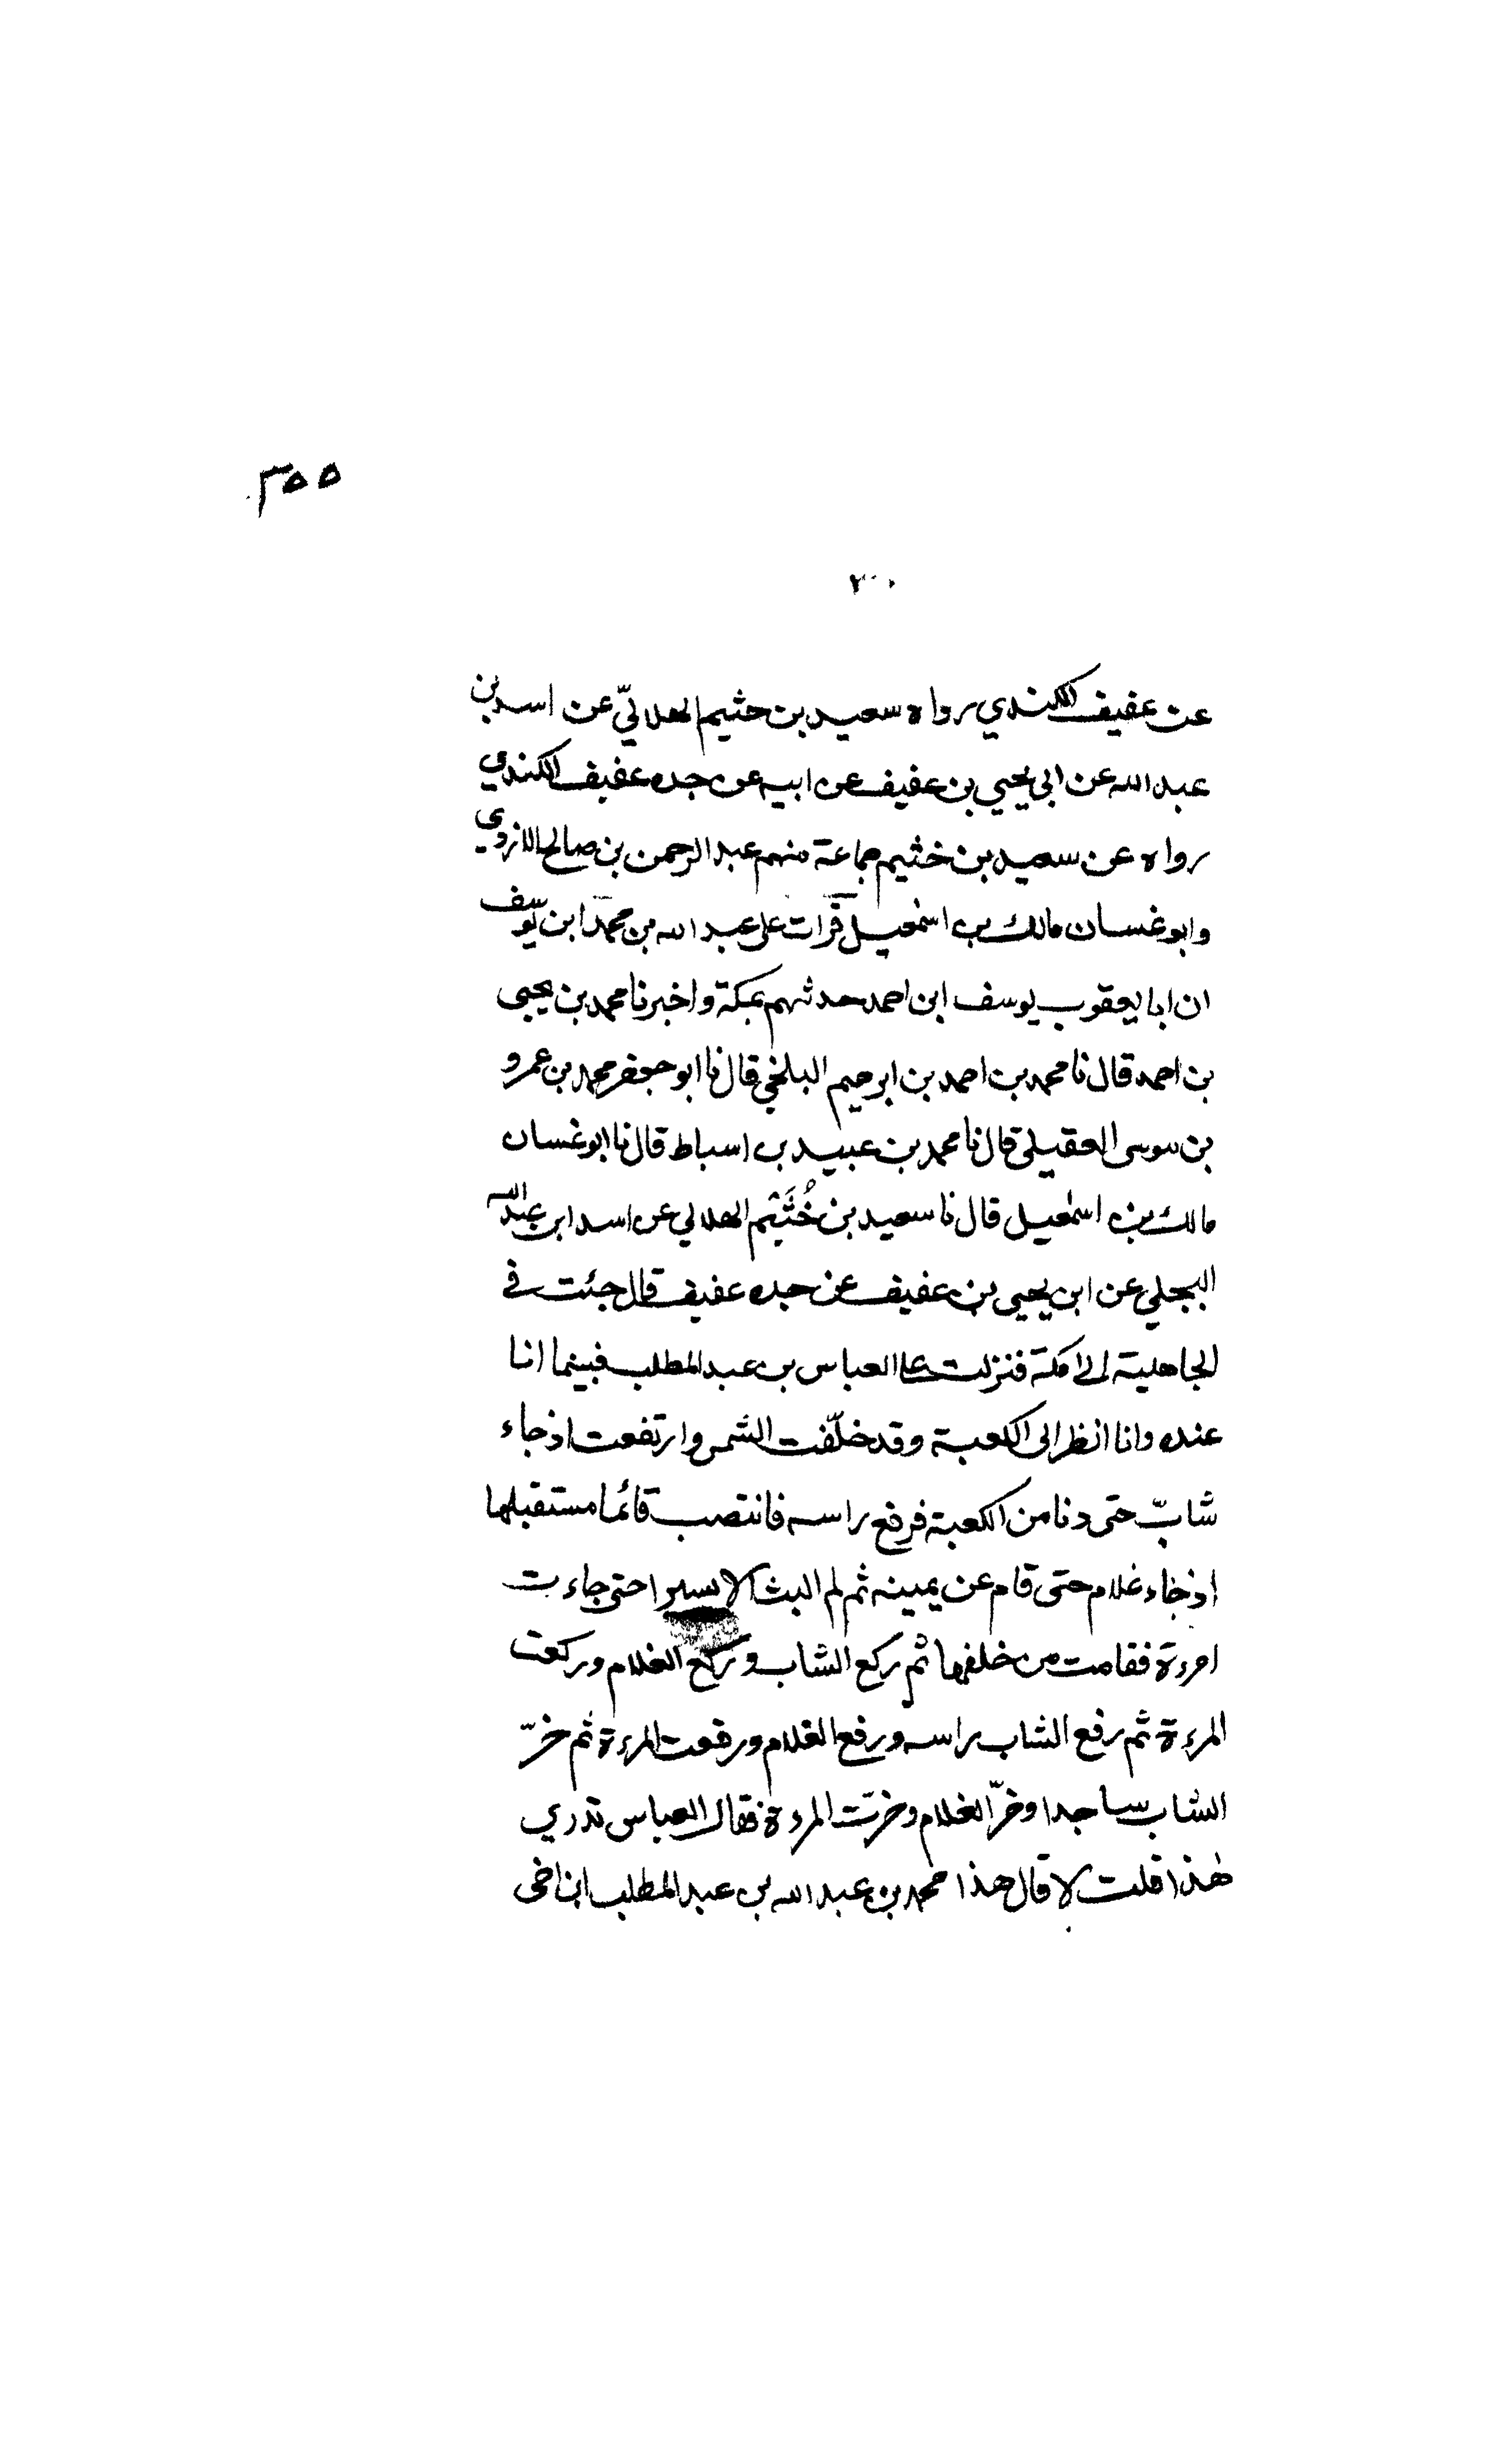 ٣٥٥
٢٠٠
عن عفيف الكندي رواه سعيد بن خثيم الهلاليّ عن اسد بن
عبد الله عن ابي يحيي بن عفيف عن ابيه عن جده عفيف الكندي
رواه عن سعيد بن خثيم جماعة منهم عبد الرحمن بن صالح الازدي
وابو غسان مالك بن اسمعيل قرات على عبد الله بن محمد ابن يوسف
ان ابا يعقوب يوسف ابن احمد حدثهم بمكة واخبرنا محمد بن يحيى
بن احمد قال نا محمد بن احمد بن ابرهيم البلخي قال نا ابو جعفر محمد بن عمرو
بن موسى العقيلي قال نا محمد بن عبيد بن اسباط قال نا ابو غسان
مالك بن اسمعيل قال نا سعيد بن خُثَيْم الهلالي عن اسد ابن عبد الله
البجلي عن ابن يحيى بن عفيف عن جده عفيف قال جئت في
الجاهلية الى مكة فنزلت على العباس بن عبد المطلب فبينما انا
عنده وانا انظر الى الكعبة وقد خلّفت الشمس وارتفعت اذ جاء
شابّ حتى دنا من الكعبة فرفع راسه فانتصب قائما مستقبلها
اذ جاء غلام حتى قام عن يمينه ثم لم البث الا يسيرا حتى جاءت
امرءة فقامت من خلفها ثم ركع الشاب وركع الغلام وركعت
المرءة ثم رفع الشاب راسه ورفع الغلام ورفعت المرءة ثم خرّ
الشاب ساجدا وخرّ الغلام وخرّت المرءة فقال العباس تدري
هذا قلت لا قال هذا محمد بن عبد الله بن عبد المطلب ابن اخى